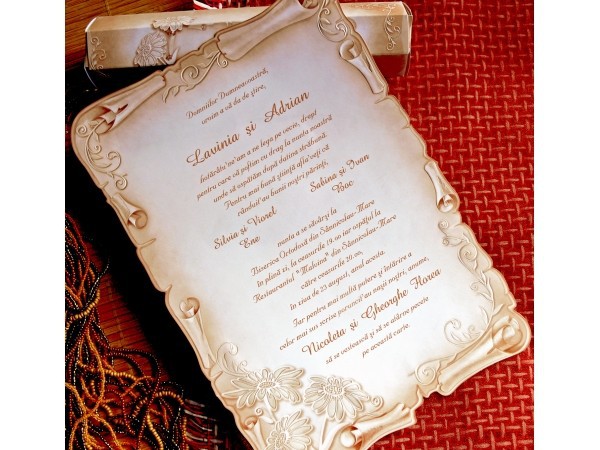 Domniilor Dumneavoastră,
vream a vă da de știre,
Lavinia și Adrian
întărâtu'ne'am a ne lega pe vecie, drept
pentru care vă poftim cu drag la nunta noastră
unde să ospătăm după datina străbună.
Pentru mai bună știință aflați că
rânduit'au bunii noștri părinți,
Sabina și Ivan
Boc
Silvia și Viorel
Ene
nunta a se săvârși la
Biserica Ortodoxă din Sânnicolau-Mare
în plină zi, la ceasurile 19.00 iar ospățul la
Restaurantul "Malvina" din Sânnicolau-Mare
către ceasurile 20.00,
în ziua de 23 august, anul acesta.
Iar pentru mai multă putere și întărire a
celor mai sus scrise poruncit'au nașii noștri, anume,
Nicoleta și Gheorghe Horea
să se vestească și să se atârne pecete
pe această carte.